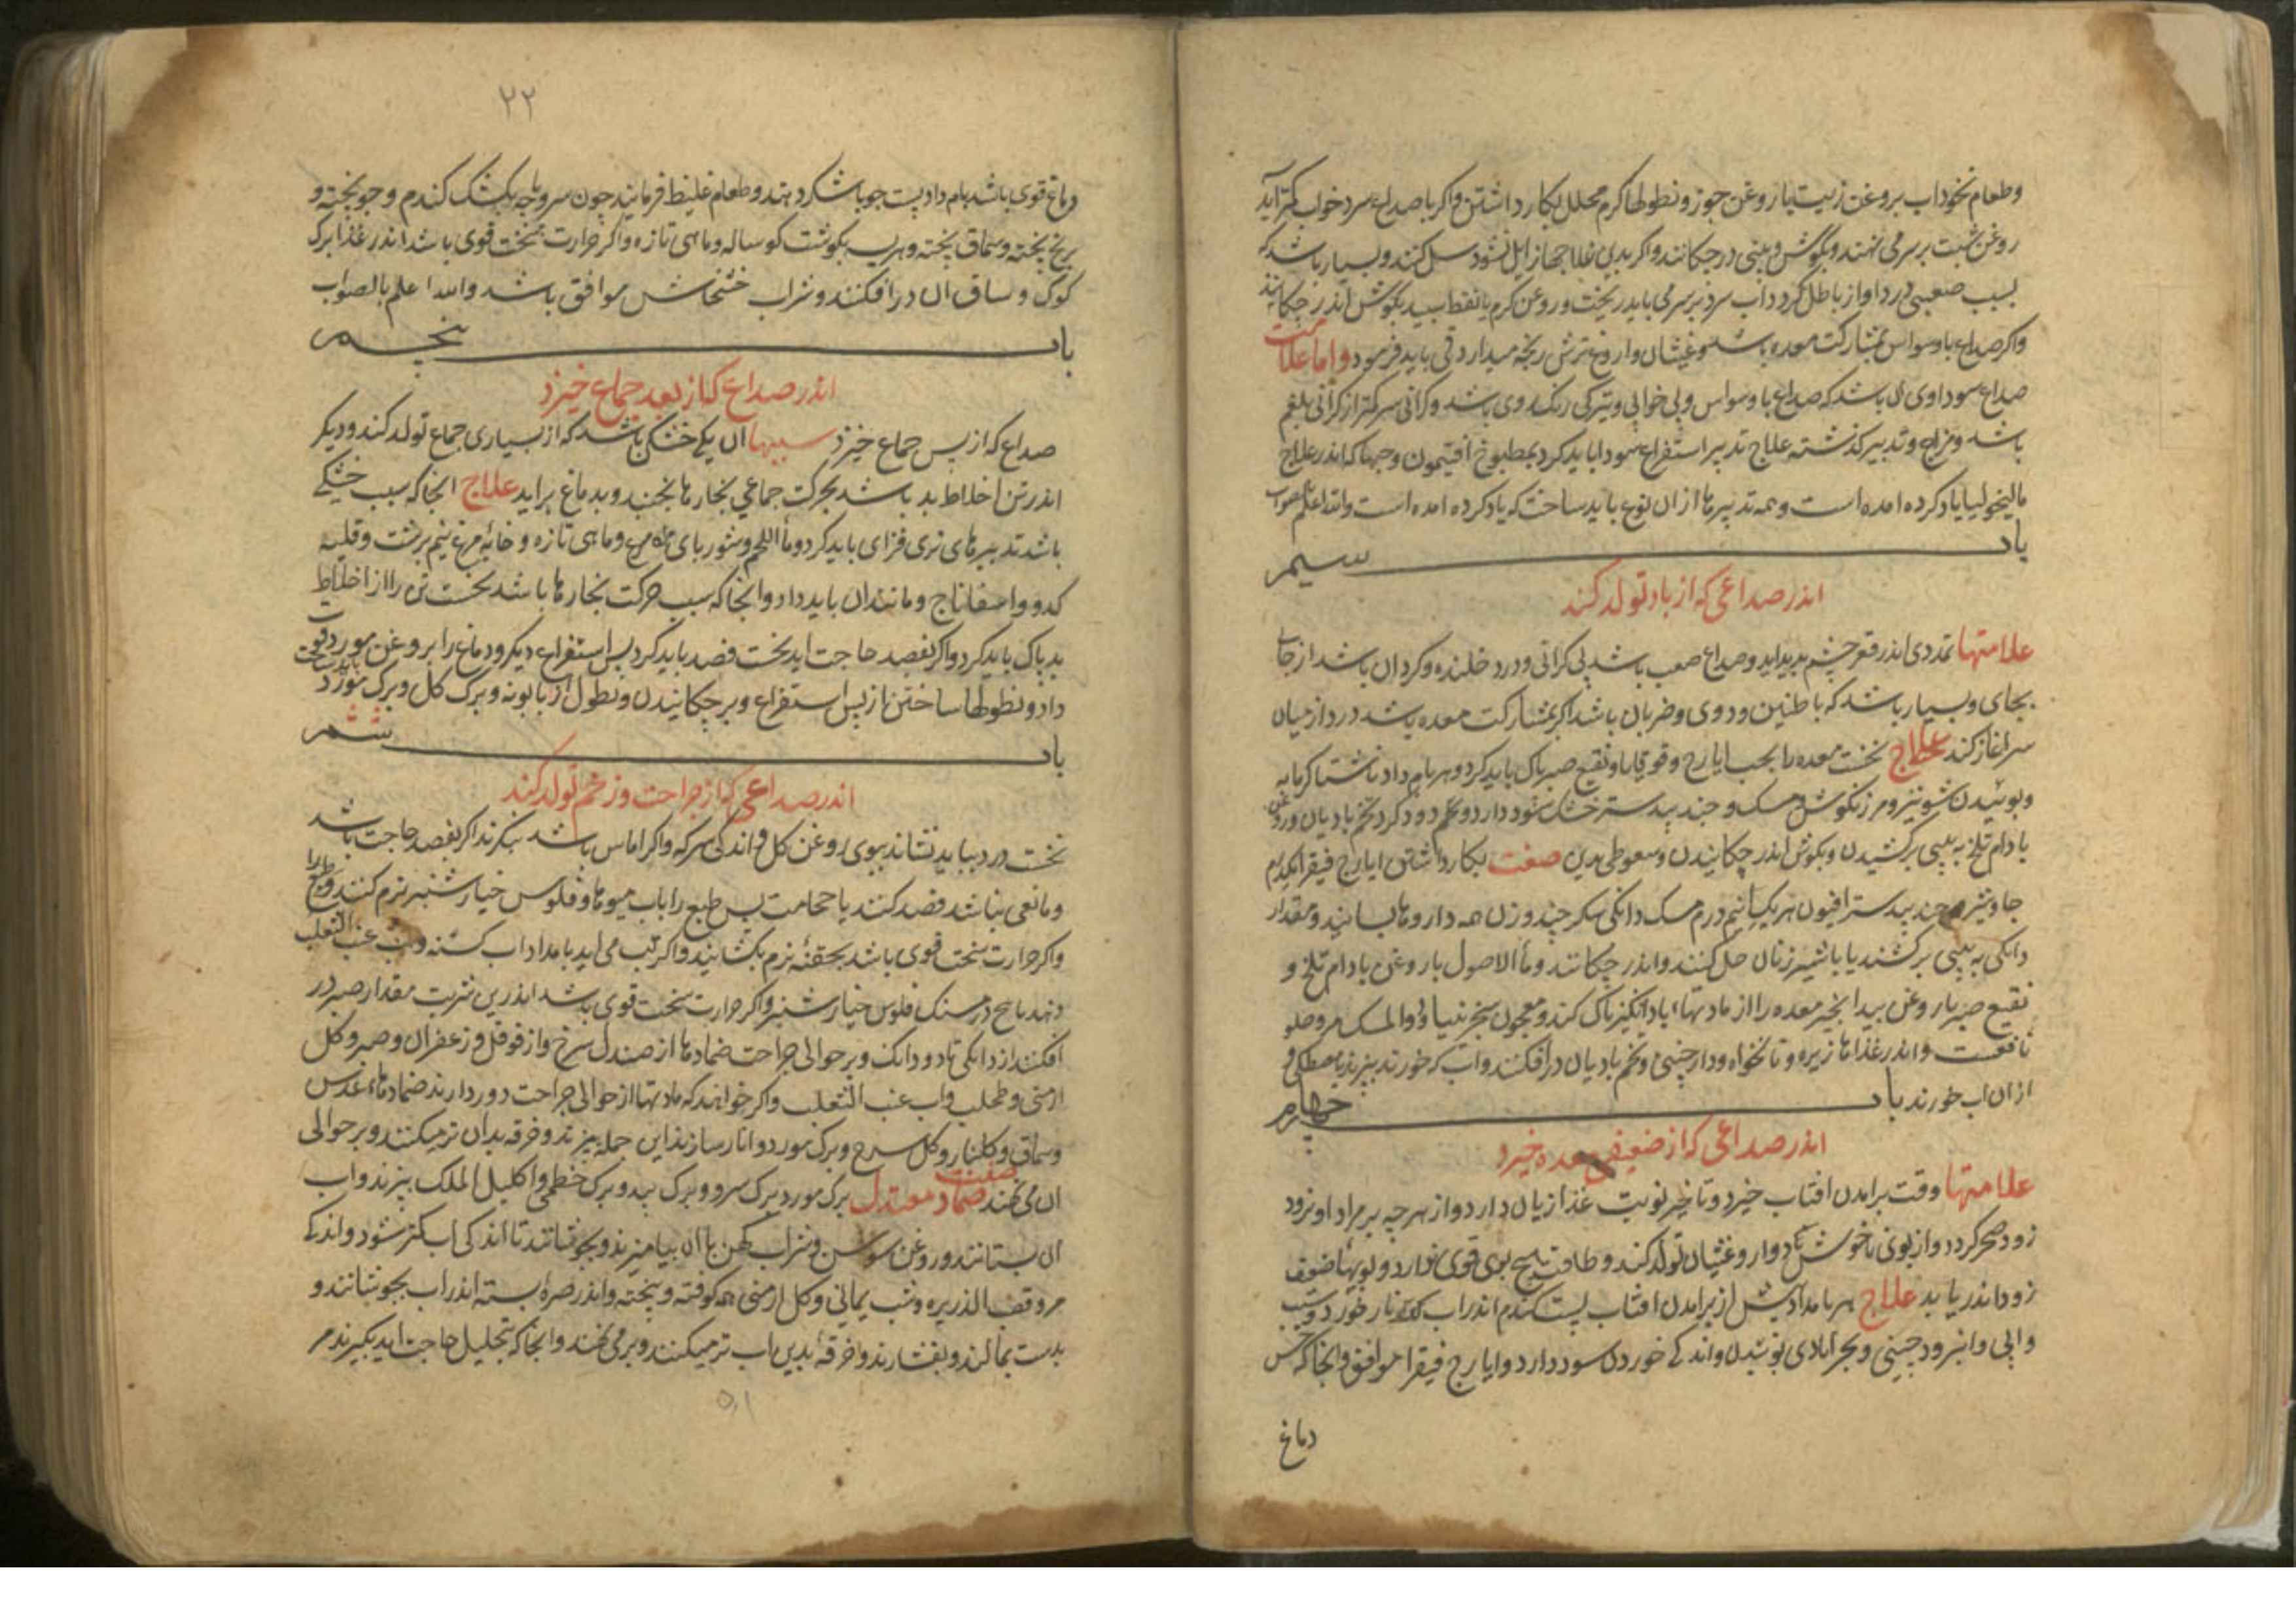 وطعام نخوداب بروغن زیت یا روغن جوز ونطولها کرم محلل بکار داشتن واکر با صداع سرد خواب کمتر آید
روغن شبت بر سر می نهند وبکوش وبینی درچکانند واکر بدین علاجها زایل نشود سل کنند وبسیار باشد که
بسبب صعبی درد اواز باطل کردد آب سرد بر سر می باید ریخت وروغن کرم یا نفط سپید بکوش اندر چکانند
واکر صداع با وسواس بمشارکت معده باشد وغثیان واروغ ترش رنجه میدارد قی باید فرمود واما علامت
صداع سوداوی ان باشد که صداع با وسواس وبی خوابی وتیرکی رنک روی باشد وکرانی سر کمتر از کرانی بلغم
باشد ومزاج وتدبیر کذشته علاج تدبیر استفراغ سودا باید کرد بمطبوخ افتیمون وحبها که اندر علاج
مالیخولیا یاد کرده امده است وهمه تدبیرها از ان نوع باید ساخت که یاد کرده امده است والله اعلم صواب
باب سیم
اندر صداعی که از باد تولد کند
علامتها تمددی اندر قعر چشم پدید اید وصداع صعب باشد بی کرانی ودرد خلنده وکردان باشد از جای
بجای وبسیار باشد که با طنین ودوی وضربان باشد اکر بمشارکت معده باشد درد از میان
سر اغاز کند علاج نخست معده را بحب ایارج وقوقایا ونقیع صبر پاک باید کرد وهر بامداد ناشتا کرمابه
وبوئیدن شونیز ومرزنکوش ومسک وجند بیدستر خشک سود دارد وتخم دود کرد تخم بادیان وروغن
بادام تلخ به بینی برکشیدن وبکوش اندر چکانیدن وسعوطی بدین صفت بکار داشتن ایارج فیقرا یکدرم
جاوشیر جند بیدستر افیون هریک نیم درم مسک دانکی شکر چند وزن همه داروها بسایند ومقدار
دانکی به بینی برکشند یا با شیر زنان حل کنند واندر چکانند وماء الاصول با روغن بادام تلخ و
نقیع صبر با روغن بید انجیر معده را از مادتها باد انکیز پاک کند ومعجون سجزنیا ودوا المسک مر وحلو
نافعست واندر غذاها زیره ونانخواه ودارچینی وتخم بادیان درافکنند وآب که خورند بپزند با مصطکی و
از ان اب خورند باب چهارم
اندر صداعی که از ضعیفی معده خیزد
علامتها وقت برامدن افتاب خیزد وتاخیر نوبت غذا زیان دارد واز هرچه بر مراد او نرود
زود ضجر کردد واز بوی ناخوش دوار وغثیان تولد کند وطاقت هیچ بوی قوی ندارد وبویها ضعیف
زود اندر یابد علاج هر بامداد پیش از برامدن افتاب پست کندم اندر اب انار خورد وسیب
وابی وامرود چینی وبحرابادی بوئیدن واندکی خوردن سود دارد وایارج فیقرا موافق وانجا که حس
دماغ
۲۲
دماغ قوی باشد بامداد پست جو با شکر دهند وطعام غلیظ فرمایند چون سر وپاچه بکشک کندم وجو پخته و
برنج پخته وسماق پخته وهریسه بکوشت کوساله وماهی تازه واکر حرارت سخت قوی باشد اندر غذا برک
کوک وساق ان درافکنند وشراب خشخاش موافق باشد والله اعلم بالصواب
باب پنجم
اندر صداع که از بعد جماع خیزد
صداع که از پس جماع خیزد سببها ان یکی خشکی باشد که از بسیاری جماع تولد کند ودیکر
اندر تن اخلاط بد باشد بحرکت جماعی بخارها بجنبد وبدماغ براید علاج انجا که سبب خشکی
باشد تدبیرهای تری فزای باید کرد وماء اللحم وشوربای مرغ وماهی تازه وخایه مرغ نیم برشت وقلیه
کدو واسفاناج ومانند ان باید داد وانجا که سبب حرکت بخارها باشد نخست تن را از اخلاط
بد پاک باید کرد واکر بفصد حاجت اید نخست فصد باید کرد پس استفراغ دیکر ودماغ را بروغن مورد قوت
داد ونطولها ساختن از پس استفراغ وبرچکانیدن ونطول از بابونه وبرک کل وبرک مورد باید ساخت
باب ششم
اندر صداعی که از جراحت وزخم تولد کند
نخست درد بباید نشاند ببوی روغن کل واندکی سرکه واکر اماس باشد بنکرند اکر بفصد حاجت باشد
ومانعی نباشد فصد کنند یا حجامت پس طبع را باب میوها وفلوس خیار شنبر نرم کنند
واکر حرارت سخت قوی باشد بحقنه نرم بکشایند واکر تب می اید بامداد اب کسنه واب عنب الثعلب
دهند با پنج درمسنک فلوس خیار شنبر واکر حرارت سخت قوی باشد اندرین شربت مقدار صبر در
افکنند از دانکی تا دو دانک وبر حوالی جراحت ضمادها از صندل سرخ واز فوفل وزعفران وصبر وکل
ارمنی وطحلب واب عنب الثعلب واکر خواهند که مادتها از حوالی جراحت دور دارند ضمادهاء عدس
وسماق وکلنار وکل سرخ وبرک مورد وانار سازند این جمله بپزند وخرقه بدان تر میکنند وبر حوالی
ان می نهند صفت ضماد معتدل برک مورد برک سرو وبرک بید وبرک خطمی واکلیل الملک بپزند واب
ان بستانند وروغن سوسن وشراب کهن با ان بیامیزند وبجوشانند تا اندکی اب کمتر شود واندکی
مر وقصب الذریره وشب یمانی وکل ارمنی همه کوفته وپخته واندر صره بسته اندر اب بجوشانند و
بدست بمالند وبفشارند وخرقه بدین اب تر میکنند وبر می نهند وانجا که بتحلیل حاجت اید بکیرند مر